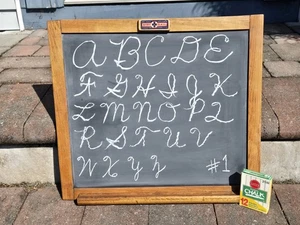 A B C D E
F G H I J K
L M N O P Q
R S T U V
W X Y Z #1
CHALK
12